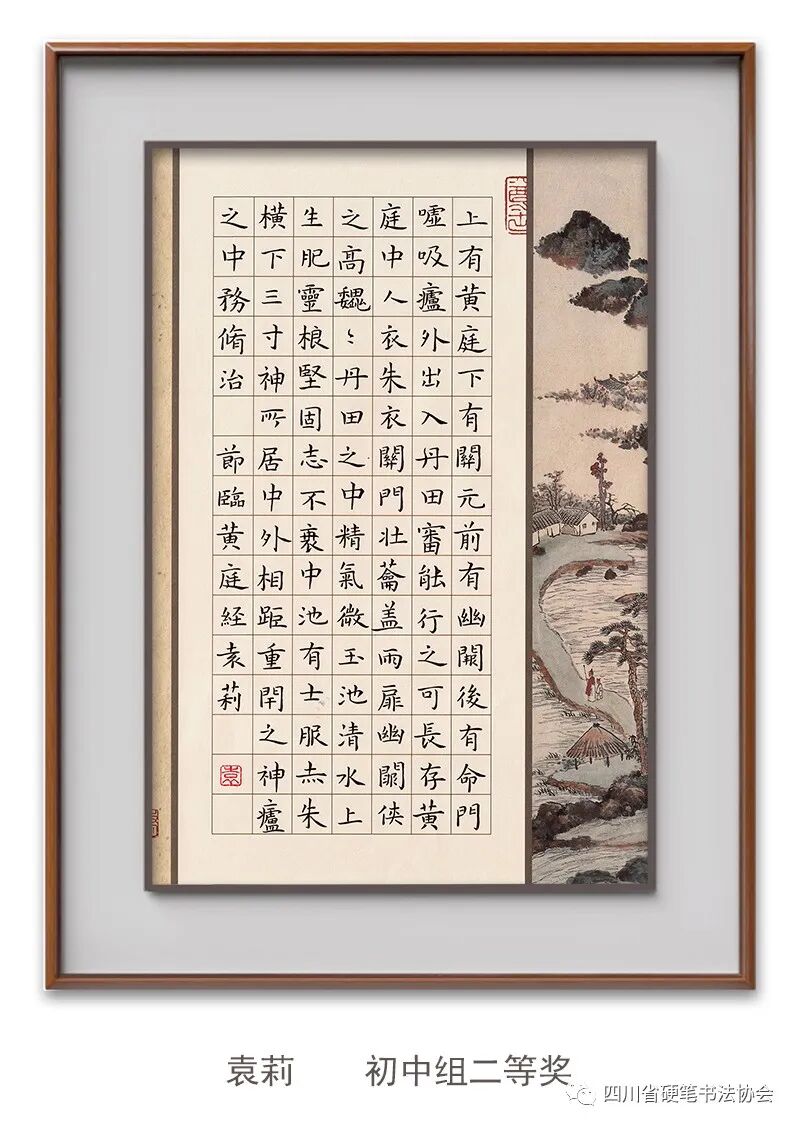 上有黃庭下有關元前有幽闕後有命門
噓吸廬外出入丹田審能行之可長存黃
庭中人衣朱衣關門壯蘥盖兩扉幽闕俠
之高魏〻丹田之中精氣微玉池清水上
生肥靈根堅固志不衰中池有士服赤朱
橫下三寸神所居中外相距重閇之神廬
之中務脩治
節臨黃庭経袁莉
袁莉 初中组二等奖
四川省硬笔书法协会